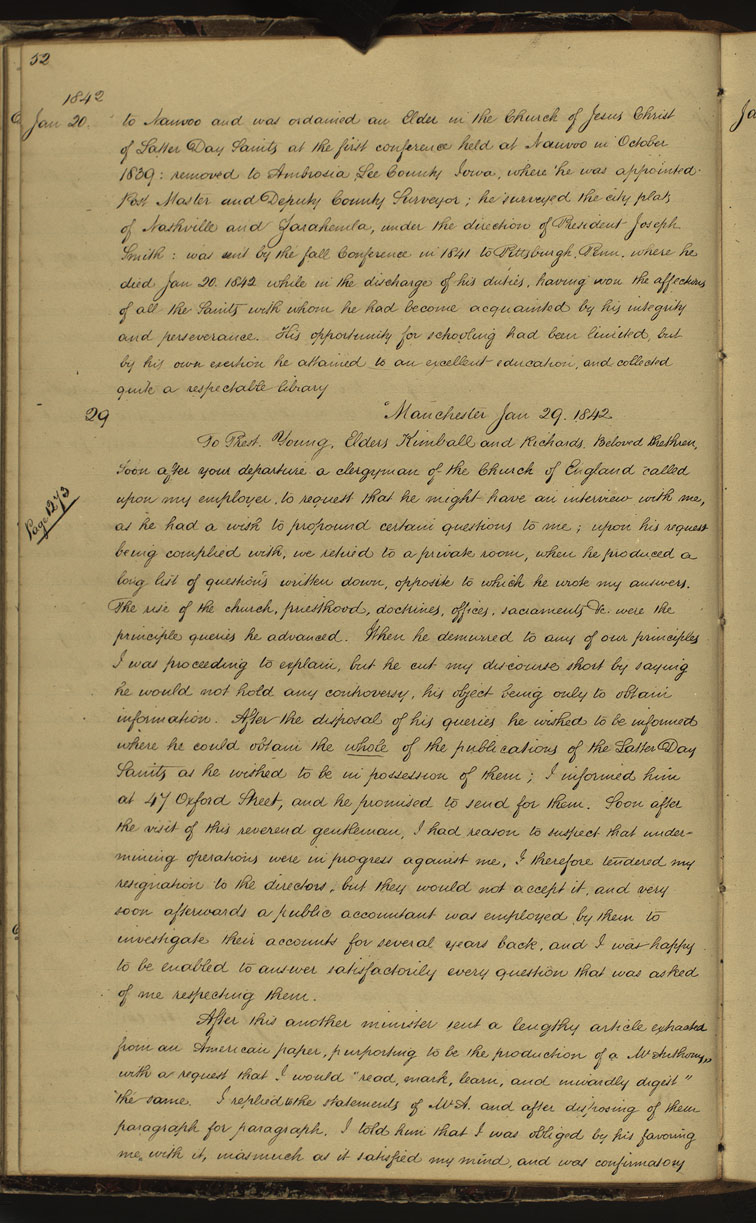 52
1842
Jan 20. to Nauvoo and was ordained an Elder in the Church of Jesus Christ
of Latter Day Saints at the first conference held at Nauvoo in October
1839: removed to Ambrosia, Lee County Iowa, where he was appointed
Post Master and Deputy County Surveyor; he surveyed the city plats
of Nashville and Zarahemla, under the direction of President Joseph
Smith: was sent by the fall Conference in 1841 to Pittsburgh, Penn. where he
died Jan 20. 1842 while in the discharge of his duties, having won the affections
of all the Saints with whom he had become acquainted by his integrity
and perseverance. His opportunity for schooling had been limited, but
by his own exertion he attained to an excellent education, and collected
quite a respectable library
29 "Manchester Jan 29. 1842.
To Prest. Young, Elders Kimball and Richards, Beloved Brethren,
Soon after your departure a clergyman of the Church of England called
upon my employer, to request that he might have an interview with me,
Page 1273
as he had a wish to propound certain questions to me; upon his request
being complied with, we retired to a private room, when he produced a
long list of questions written down, opposite to which he wrote my answers.
The rise of the church, priesthood, doctrines, offices, sacraments &c. were the
principle queries he advanced. When he demurred to any of our principles
I was proceeding to explain, but he cut my discourse short by saying
he would not hold any controversy, his object being only to obtain
information. After the disposal of his queries he wished to be informed
where he could obtain the whole of the publications of the Latter Day
Saints as he wished to be in possession of them; I informed him
at 47 Oxford Street, and he promised to send for them. Soon after
the visit of this reverend gentleman, I had reason to suspect that under-
mining operations were in progress against me, I therefore tendered my
resignation to the directors, but they would not accept it, and very
soon afterwards a public accountant was employed by them to
investigate their accounts for several years back, and I was happy
to be enabled to answer satisfactorily every question that was asked
of me respecting them.
After this another minister sent a lengthy article extracted
from an American paper, purporting to be the production of a Mr Anthony,
with a request that I would "read, mark, learn, and inwardly digest"
the same. I replied to the statements of Mr A. and after disposing of them
paragraph for paragraph, I told him that I was obliged by his favoring
me with it, inasmuch as it satisfied my mind, and was confirmatory
Ja